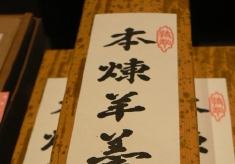 本煉羊羹